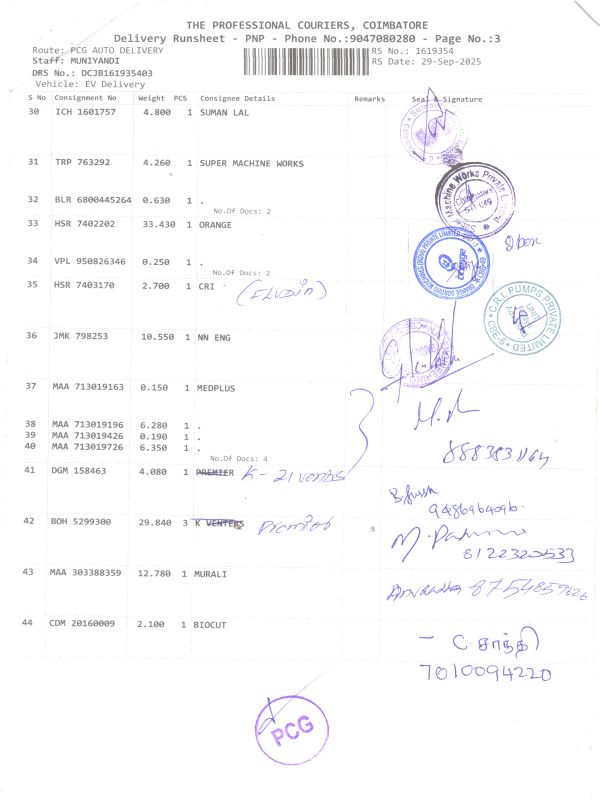 THE PROFESSIONAL COURIERS, COIMBATORE
Delivery Runsheet - PNP - Phone No.:9047080280 - Page No.:3
Route: PCG AUTO DELIVERY RS No.: 1619354
Staff: MUNIYANDI RS Date: 29-Sep-2025
DRS No.: DCJB161935403
Vehicle: EV Delivery
S No Consignment No Weight PCS Consignee Details Remarks Seal & Signature
30 ICH 1601757 4.800 1 SUMAN LAL
31 TRP 763292 4.260 1 SUPER MACHINE WORKS
32 BLR 6800445264 0.630 1 .
No.Of Docs: 2
33 HSR 7402202 33.430 1 ORANGE
34 VPL 950826346 0.250 1 .
No.Of Docs: 2
35 HSR 7403170 2.700 1 CRI
C.R.I. PUMPS PRIVATE LIMITED
36 JMK 798253 10.550 1 NN ENG
37 MAA 713019163 0.150 1 MEDPLUS
38 MAA 713019196 6.280 1 .
39 MAA 713019426 0.190 1 .
40 MAA 713019726 6.350 1 .
No.Of Docs: 4
8883831164
41 DGM 158463 4.080 1 PREMIER
9486964096.
42 BOH 5299300 29.840 3 K VENTEKS
8122320533
43 MAA 303388359 12.780 1 MURALI
8754859626
44 CDM 20160009 2.100 1 BIOCUT
- C சாந்தி
7010094220
PCG